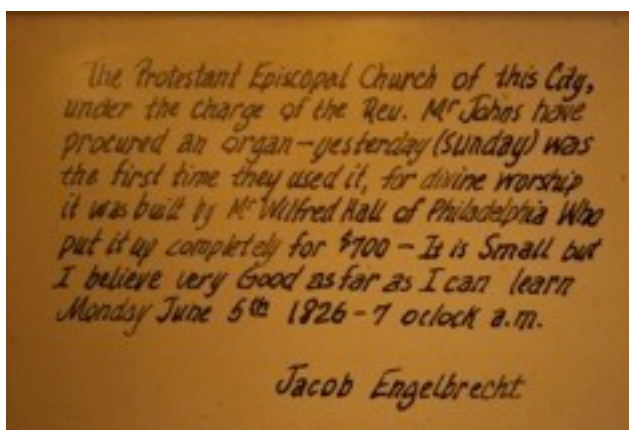 The Protestant Episcopal Church of this City,
under the charge of the Rev. Mr Johns have
procured an organ—yesterday (Sunday) was
the first time they used it, for divine worship
it was built by Mr Wilfred Hall of Philadelphia Who
put it up completely for $700 – It is Small but
I believe very Good as far as I can learn
Monday June 5th 1826 – 7 oclock a.m.
Jacob Engelbrecht